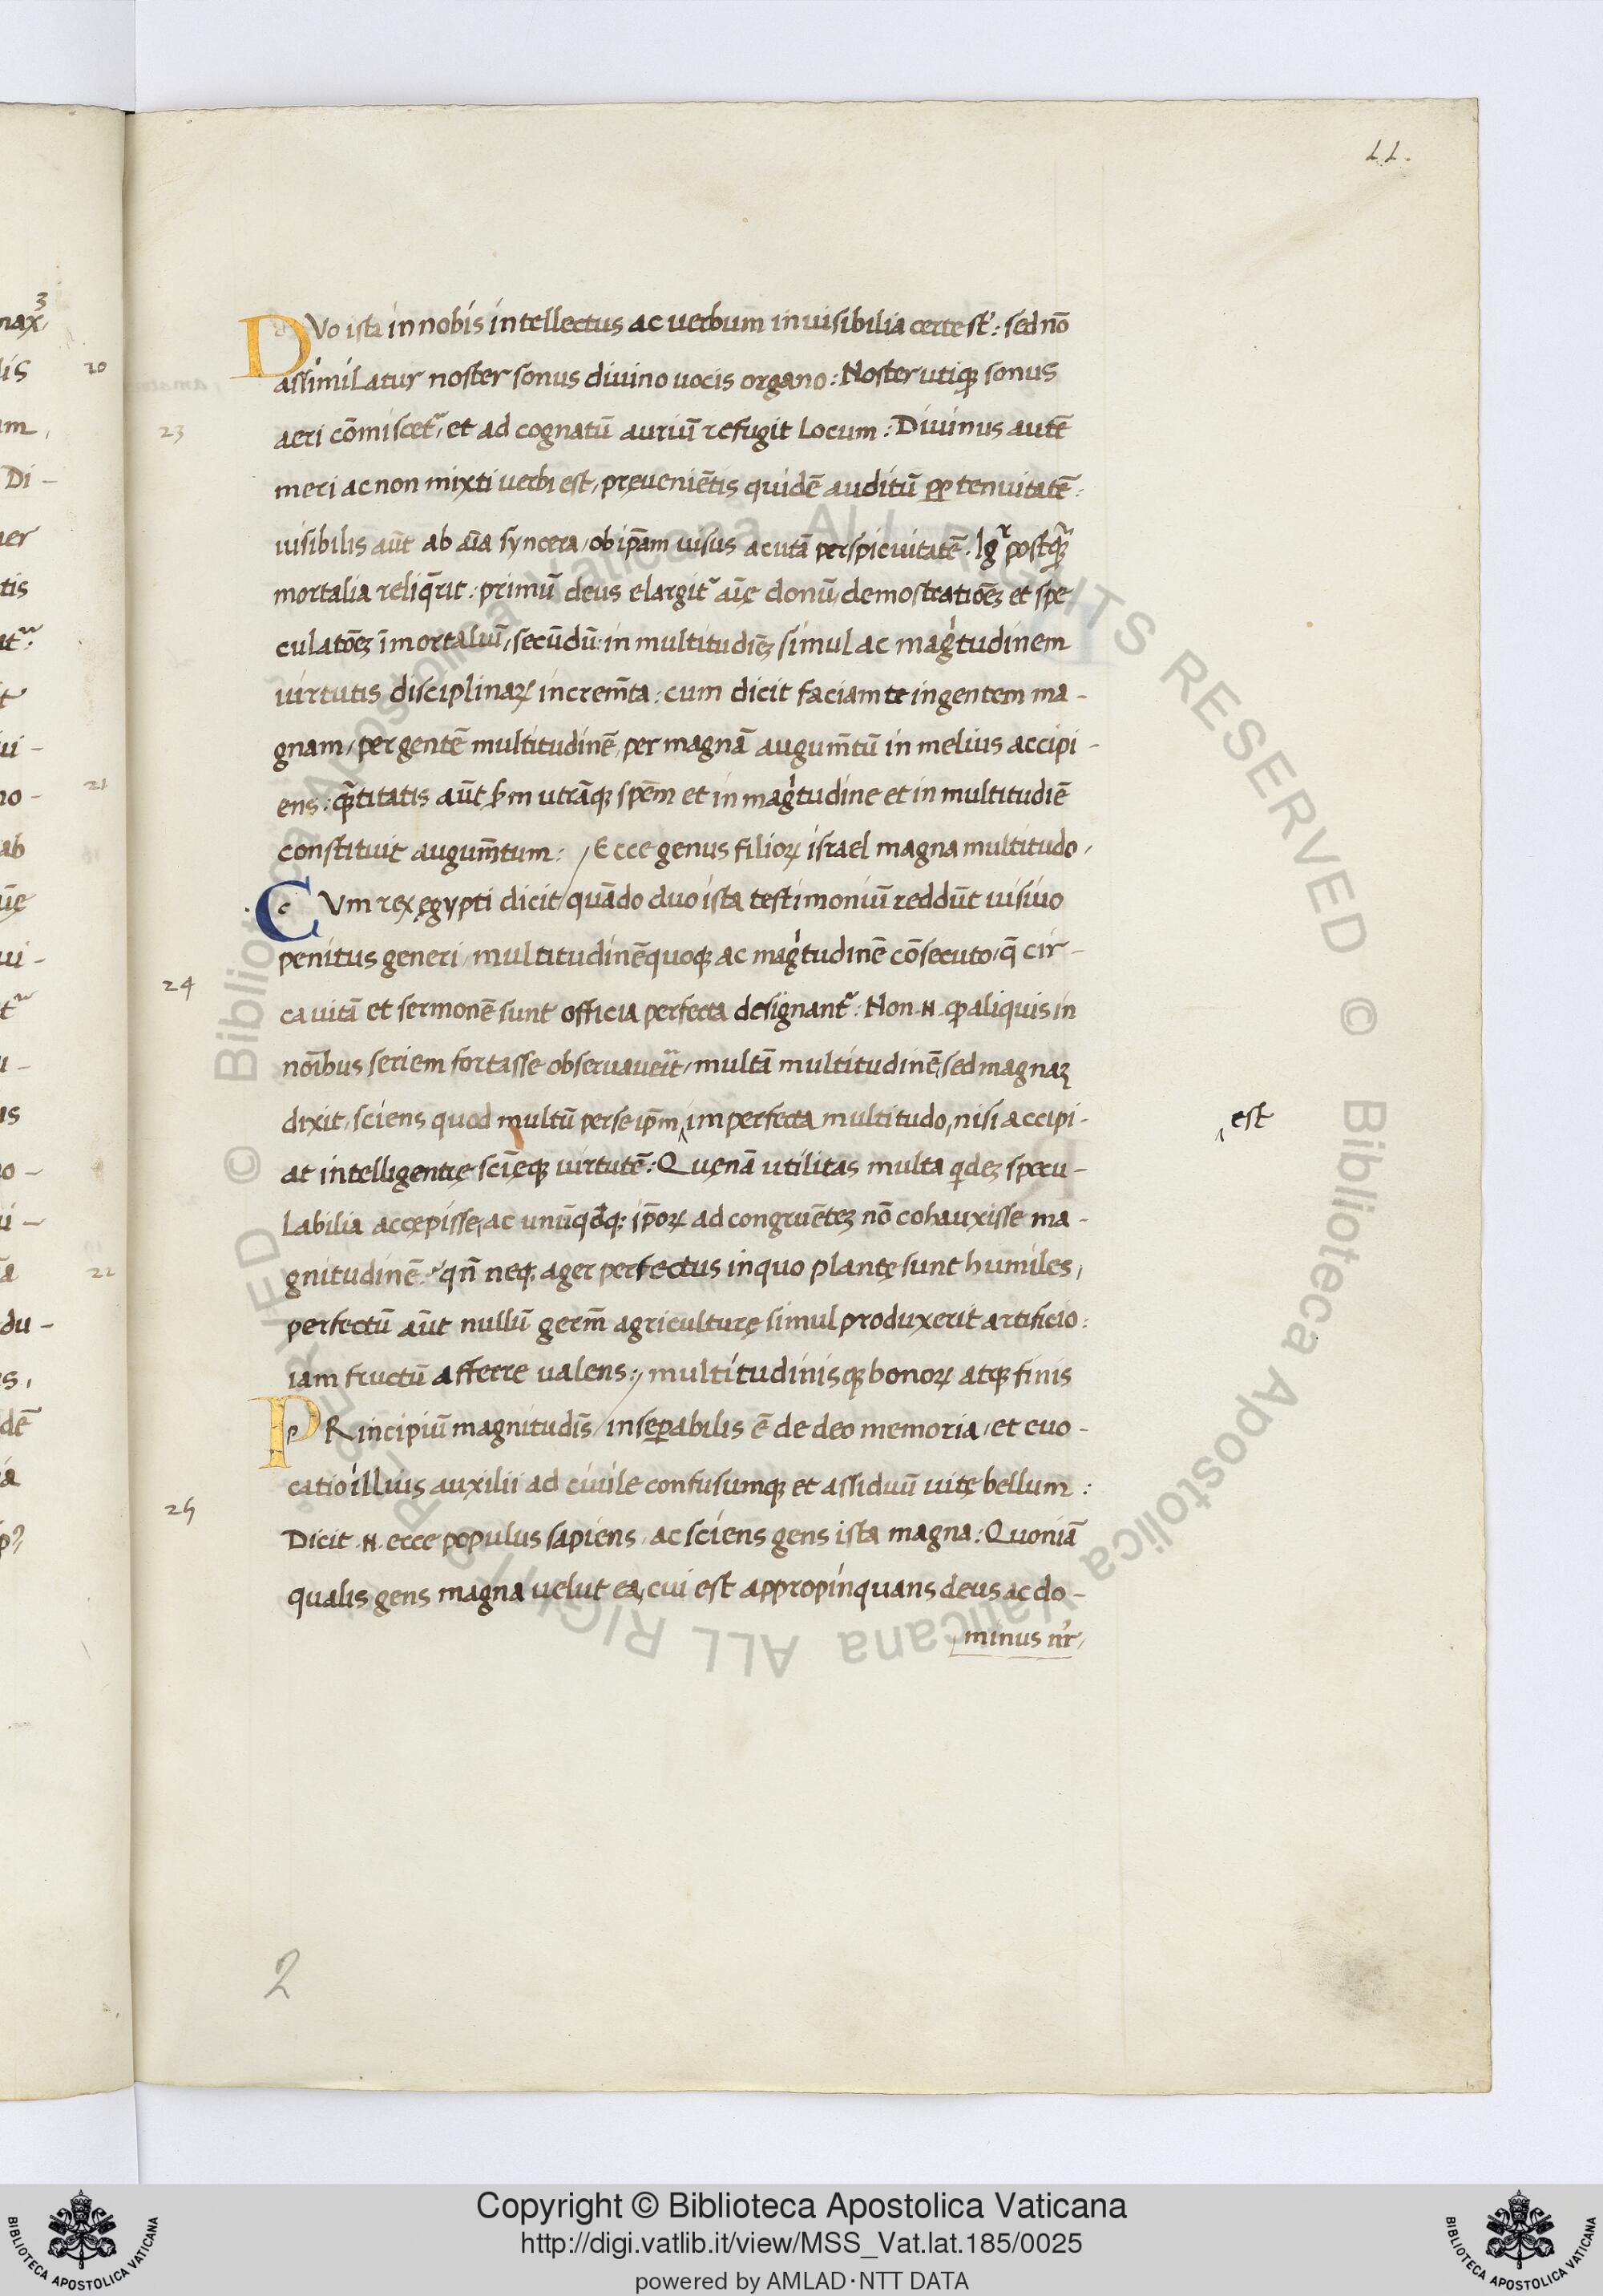 11.
DVo ista in nobis intellectus ac uerbum inuisibilia certe st̄: sed nō
assimilatur noster sonus diuino uocis organo: Noster utiqꝫ sonus
23
aeri cōmiscet᷑, et ad cognatū auriū refugit locum: Diuinus autē
meri ac non mixti uerbi est, pręueniētis quidē auditū ꝓꝑ tenuitatē:
uisibilis aūt ab aīa syncera, ob ip̄am uisus acutā perspicuitatē. Igr̄ postqꝫ̄
mortalia reliq̄rit: primū deus elargit᷑ aīę donū, demostratiōēꝫ et spe
culatōēꝫ īmortaliū, secūdū: in multitudīēꝫ simul ac magͥtudinem
uirtutis disciplinaꝝ increm̄ta: cum dicit faciam te in gentem ma-
gnam, per gentē multitudinē, per magnā augum̄tū in melius accipi-
ens: qꝫ̄titatis aūt ẜm utrāqꝫ spēm et in magͥtudine et in multitudīē
constituit augum̄tum: / Ecce genus filioꝝ israel magna multitudo,
CVm rex ęgypti dicit / quādo duo ista testimoniū reddūt uisiuo
penitus generi, multitudinē quoqꝫ ac magͥtudinē cōsecuto, q̄ cir-
24
ca uitā et sermonē sunt officia perfecta designant᷑: Non .N. qꝫ aliquis in
noībus seriem fortasse obseruauerit, multā multitudinē, sed magnaꝫ
dixit, sciens quod multū per se ip̄m ‸ imperfecta multitudo, nisi accipi-
‸ est
at intelligentię sciēęqꝫ uirtutē: Quęnā utilitas multa qͥdeꝫ specu-
labilia accępisse, ac unūqd̄qꝫ ip̄oꝝ ad congruēteꝫ nō cohauxisse ma-
gnitudinē: qn̄ neqꝫ ager perfectus in quo plantę sunt humiles,
perfectū aūt nullū germ̄ agriculturę simul produxerit artificio:
iam fructū afferre ualens: / multitudinisqꝫ bonoꝝ atqꝫ finis
PRincipiū magnitudīs / insep̱abilis ē de deo memoria, et euo-
catio illius auxilii ad ciuile confusumqꝫ et assiduū uitę bellum:
25
Dicit .N. ecce populus sapiens, ac sciens gens ista magna: Quoniā
qualis gens magna uelut ea, cui est appropinquans deus ac do-
minus nr̄,
2
Copyright © Biblioteca Apostolica Vaticana
http://digi.vatlib.it/view/MSS_Vat.lat.185/0025
powered by AMLAD·NTT DATA